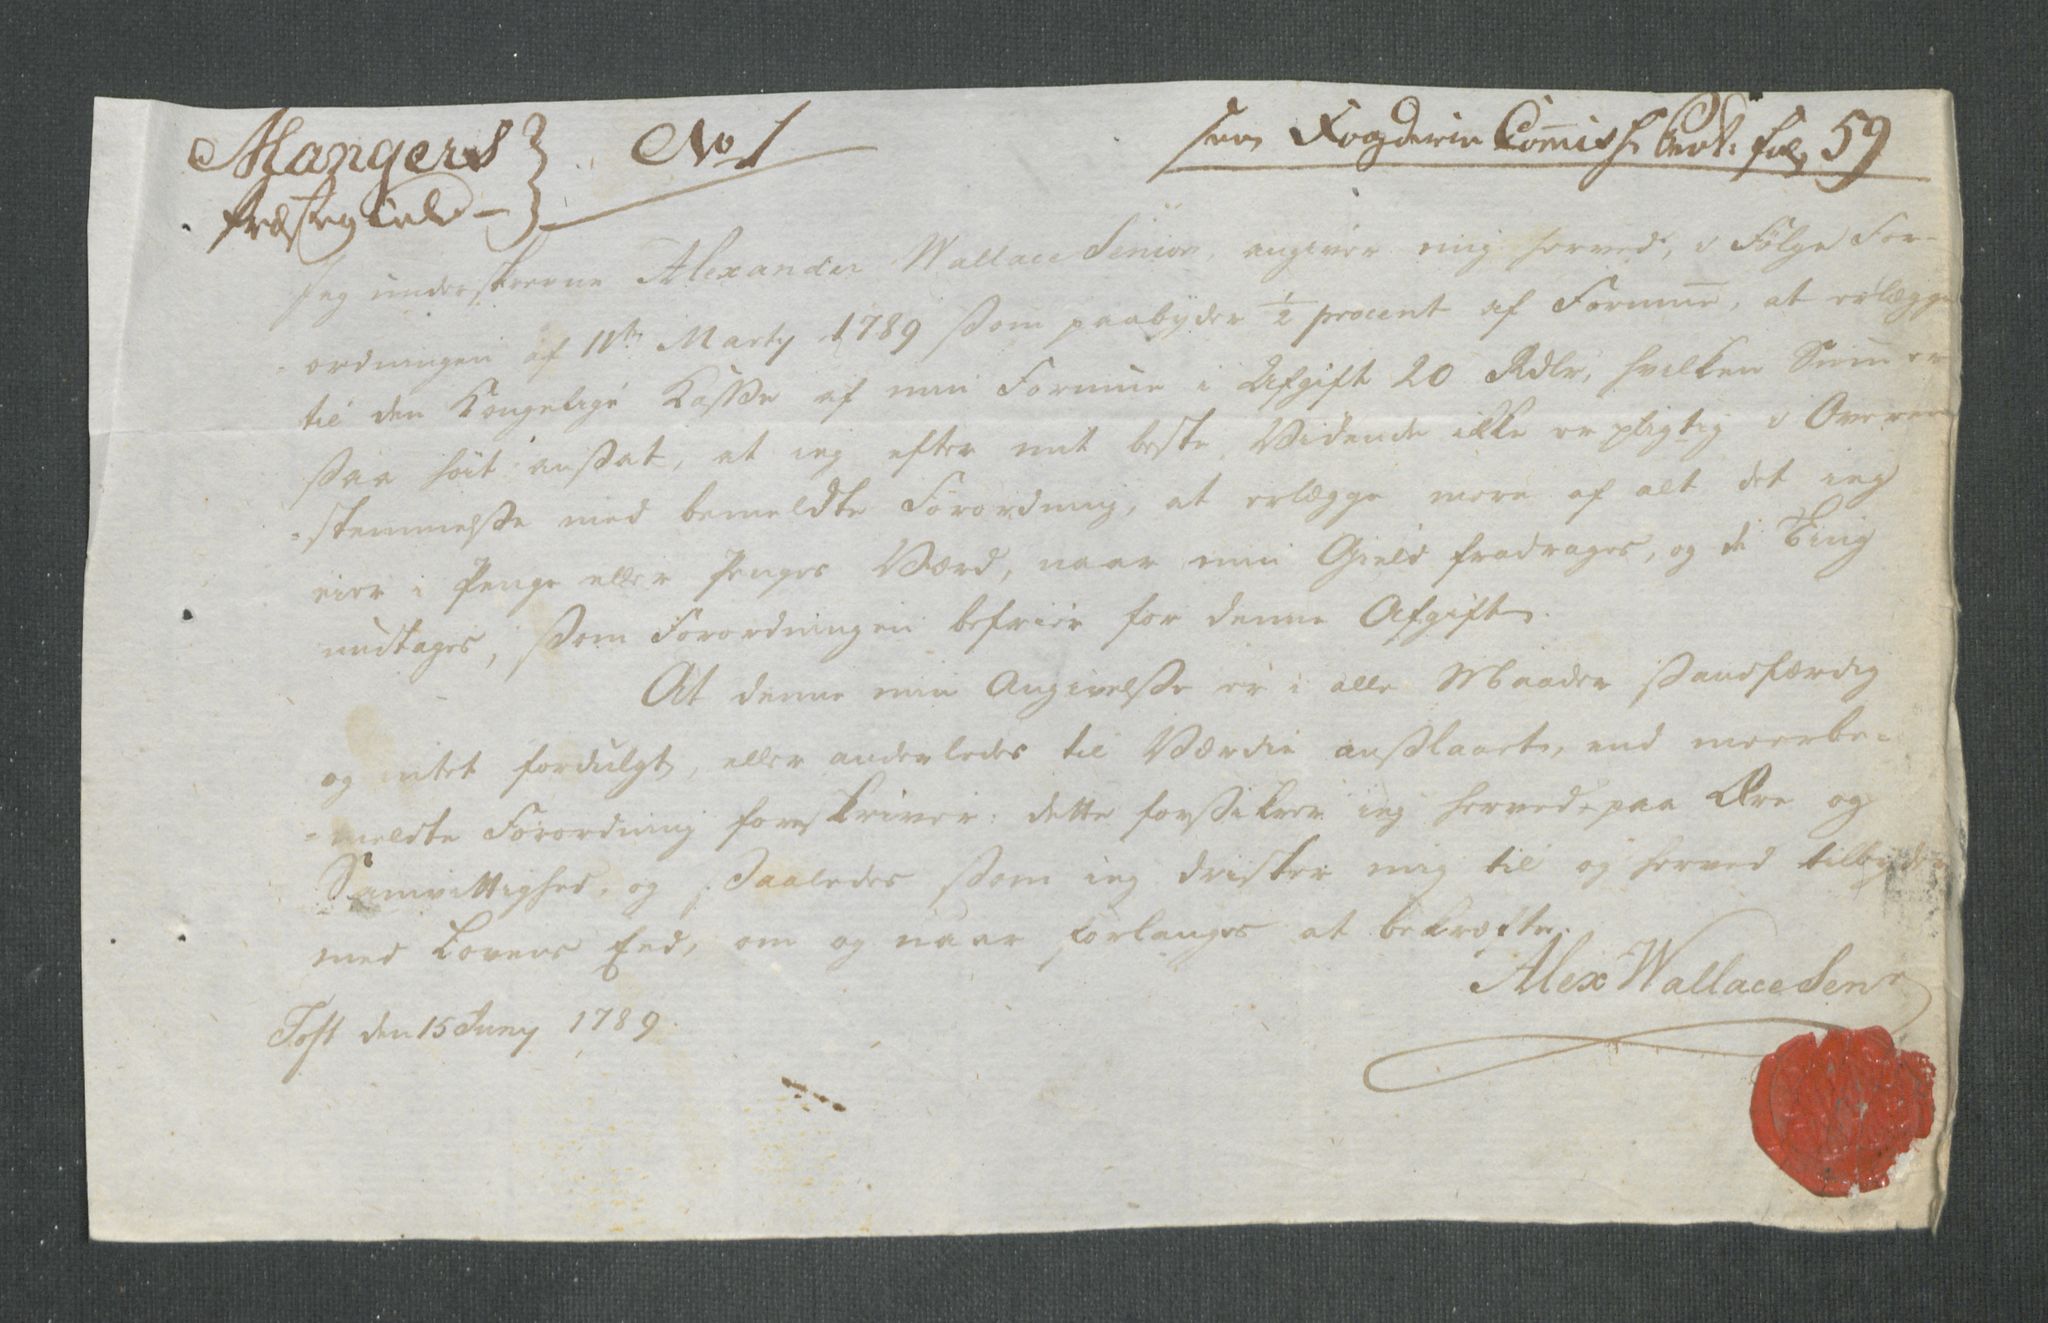 Mangers No 1
Fogderie Commiss. fol. 59
Præstegield
Jeg underskrevne Alexander Wallace Senior, angiver mig herved, i Følge For-
-ordningen af 11te Marty 1789 som paabyder ½ procent af Formue, at erlægge
til den Kongelige Kasse af min Formue i Afgift 20 Rdlr, hvilken Sum er
saa høit ansat, at ieg efter mit beste Vidende ikke er pligtig i Overeen
-stemmelse med bemeldte Forordning, at erlægge mere af alt det ieg
eier i Penge eller Penges Værd, naar min Gield fradrages, og de Ting
undtages, som Forordningen befrier for denne Afgift.
At denne min Angivelse er i alle Maader sandfærdig
og intet fordulgt, eller anderledes til Værdie anslaaet, end meerbe-
-meldte Forordning foreskriver: dette forsikrer ieg herved paa Ære og
Samvittighed, og saaledes som ieg drister mig til og herved tilbyder
med Lovens Eed, om og naar forlanges at bekræfte.
Alex Wallace Senr
Toft den 15 Juny 1789